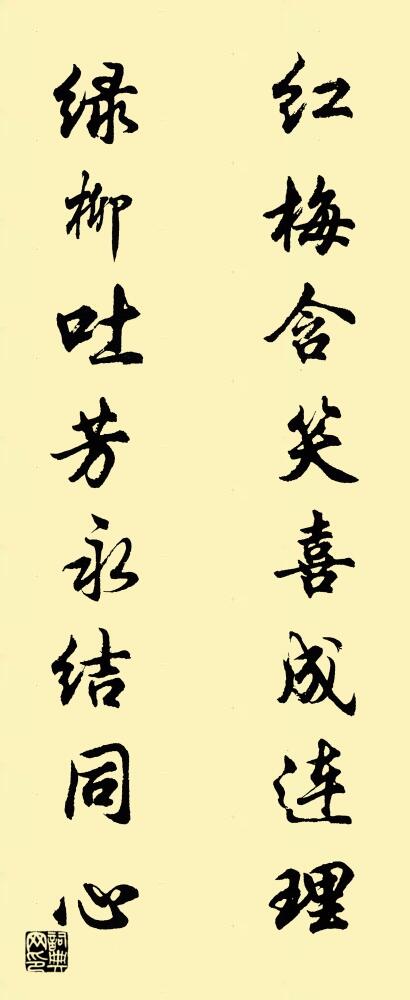 红梅含笑喜成连理
绿柳吐芳永结同心
词典网印